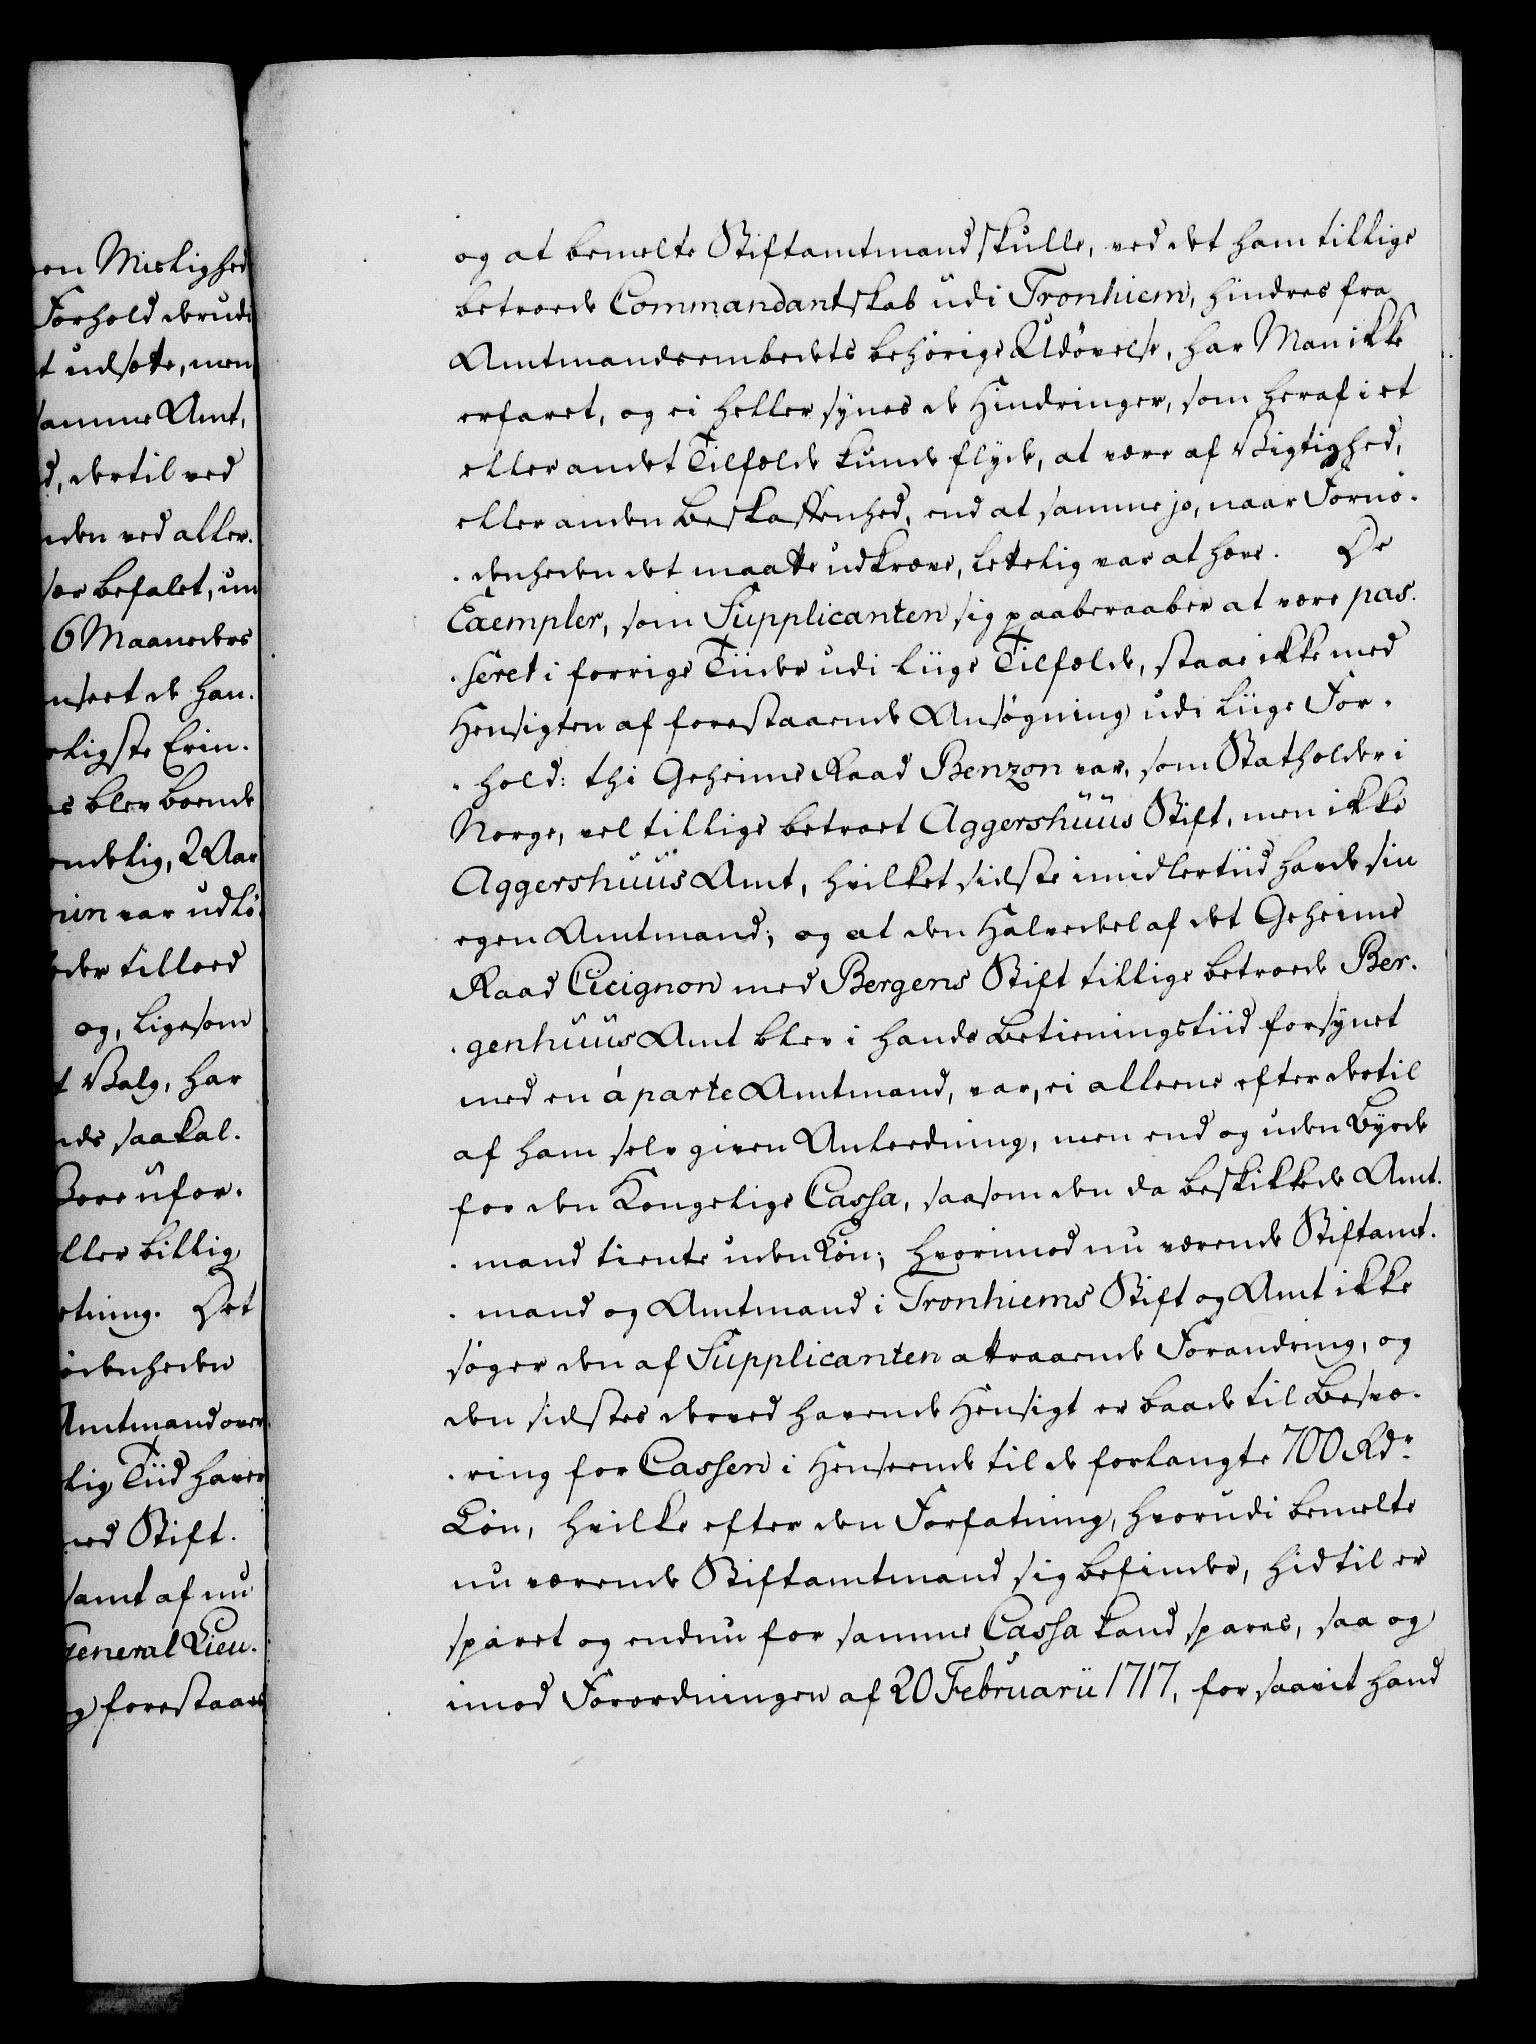 en Mislighed
Forhold derudi
t udsætte, men
samme Amt,
d, dertil ved
nden ved aller-
før befalet, un
6 Maaneders
nseet de han-
rligste Erin-
s blev boende
endelig, 2 Aar
min var udlø-
eder tillæd
og, ligesom
t Valg, har
nds saakal-
Bore ufor-
ller billig
etning. Det
ødenheden
Amtmand over-
lig Tiid haver
med Stift-
samt af nu
General Lieu-
g forestaaes
og at bemelte Stiftamtmand skulle, ved det ham tillige
betroede Commandantskab udi Tronhiem, hindres fra
Amtmandsembedets behørige Udøvelse, har Man ikke
erfaret, og ei heller synes de Hindringer, som heraf i et
eller andet Tilfælde kunde flyde, at være af Vigtighed,
eller anden Beskaffenhed, end at samme jo, naar Fornø-
-denheden det maatte udkræve, lettelig var at hæve. De
Exempler, som Supplicanten sig paaberaaber at være pas-
-seret i forrige Tiider udi liige Tilfælde, staae ikke med
Hensigten af forestaaende Ansøgning udi liige For-
-hold: thi Geheime Raad Benzon var, som Statholder i
Norge, vel tillige betroet Aggershuus Stift, men ikke
Aggershuus Amt, hvilket sidste imidlertiid havde sin
egen Amtmand; og at den Halvedel af det Geheime
Raad Cicignon med Bergens Stift tillige betroede Ber-
-genhuus Amt blev i hands Betieningstiid forsynet
med en à parte Amtmand, var, ei alleene efter dertil
af ham selv given Anleedning, men end og uden Byrde
for den Kongelige Cassa, saasom den da beskikkede Amt-
-mand tiente uden Løn; hvorimod nu værende Stiftamt-
-mand og Amtmand i Tronhiems Stift og Amt ikke
søger den af Supplicanten attraaende Forandring, og
den sidstes derved havende Hensigt er baade til Besvæ-
-ring for Cassen i Henseende til de forlangte 700 Rdr
Løn, hvilke efter den Forfatning, hvorudi bemelte
nu værende Stiftamtmand sig befinder, hidtil er
sparet og endnu for samme Cassa kand spares, saa og
imod Forordningen af 20 Februarii 1717, forsaavit hand